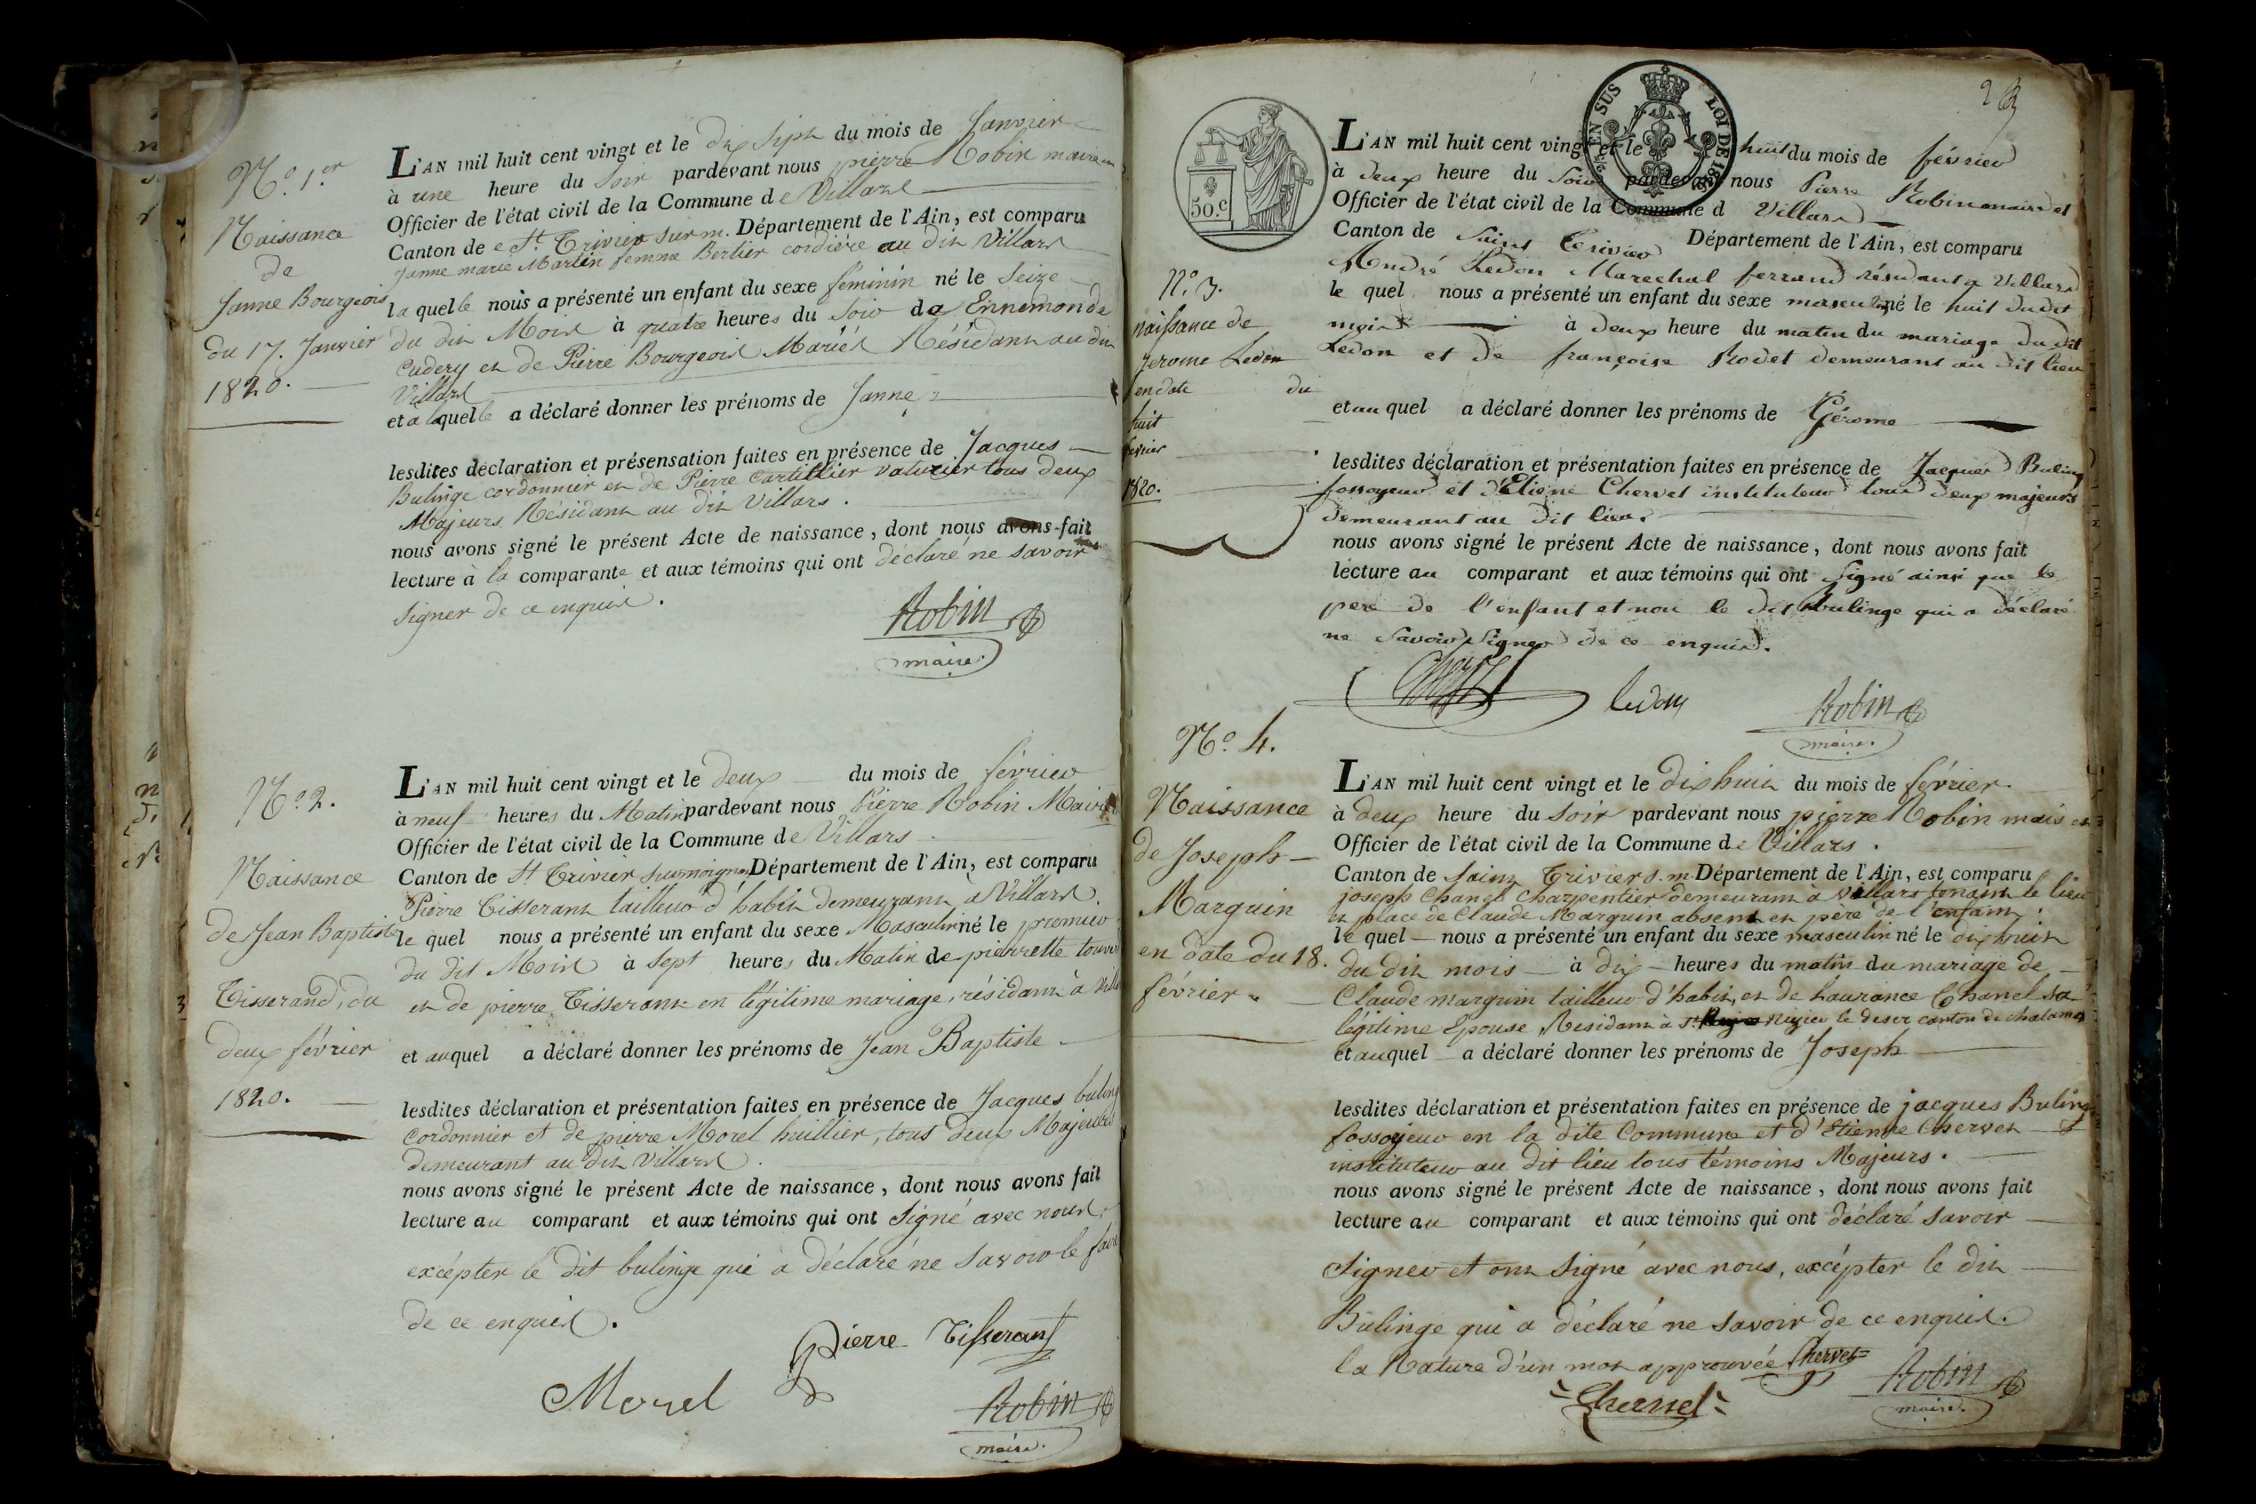 N.o 1.er
Naissance
de
Janne Bourgeois
du 17. Janvier
1820.
L'AN mil huit cent vingt et le dix Sept du mois de Janvier
à une heure du soir pardevant nous pierre Robin maire
Officier de l'état civil de la Commune de Villars
Canton de St. Trivier sur m. Département de l'Ain, est comparu
Janne marie Martin femme Bertier cordière au dit Villars
la quelle nous a présenté un enfant du sexe féminin né le Seize
du dit Mois à quatre heures du soir de Ennemonde
Cudery et de Pierre Bourgeois Mariés Résidant au dit
Villars
et a laquelle a déclaré donner les prénoms de Janne
lesdites déclaration et présensation faites en présence de Jacques
Bulinge cordonnier et de Pierre Cartillier voturier tous deux
Majeurs Résidant au dit Villars.
nous avons signé le présent Acte de naissance, dont nous avons fait
lecture à la comparante et aux témoins qui ont déclaré ne savoir
signer de ce enquis.
Robin
maire.
N.o 2.
Naissance
de Jean Baptiste
Tisserand, du
deux février
1820.
L'AN mil huit cent vingt et le deux du mois de février
à neuf heures du Matin pardevant nous Pierre Robin Maire
Officier de l'état civil de la Commune de Villars
Canton de St Trivier sur moignan Département de l'Ain, est comparu
Pierre Tisserant tailleur d'habit demeurant à Villars.
le quel nous a présenté un enfant du sexe Masculin né le premier
du dit Mois à sept heures du Matin de pierrette
et de pierre Tisserant en légitime mariage, résidant à
et auquel a déclaré donner les prénoms de Jean Baptiste
lesdites déclaration et présentation faites en présence de Jacques buling
Cordonnier et de pierre Morel huillier, tous deux Majeurs
demeurant au dit Villars.
nous avons signé le présent Acte de naissance, dont nous avons fait
lecture au comparant et aux témoins qui ont signé avec nous,
excépter le dit bulinge qui a déclaré ne savoir le faire
de ce enquis.
Pierre Tisserant
Morel
Robin
maire.
EN SUS LOI DE
50.c
N.o 3.
naissance de
jerome Ledon
en date du
huit
fevrier
1820.
L'AN mil huit cent vingt et le huit du mois de février
à deux heure du soir pardevant nous Pierre Robin maire et
Officier de l'état civil de la Commune d Villars
Canton de Saint Trivier Département de l'Ain, est comparu
André Ledon Marechal ferrand résidant a Villars
le quel nous a présenté un enfant du sexe masculin né le huit dudit
mois à deux heure du matin du mariage du dit
Ledon et de françoise Rodet demeurant au dit lieu
et au quel a déclaré donner les prénoms de Gérome
lesdites déclaration et présentation faites en présence de Jacques Buling
fossoyeur et d'Etiene Chervet instituteur tous deux majeurs
demeurant au dit lieu.
nous avons signé le présent Acte de naissance, dont nous avons fait
lecture au comparant et aux témoins qui ont signé ainsi que le
pere de l'enfant et non le dit bulinge qui a déclaré
ne savoir signer de ce enquis.
ledon
Robin
maire.
N.o 4.
Naissance
de Joseph
Marguin
en date du 18.
février.
L'AN mil huit cent vingt et le dix huit du mois de février.
à deux heure du soir pardevant nous pierre Robin maire et
Officier de l'état civil de la Commune de Villars.
Canton de Saint Trivier s. m Département de l'Ain, est comparu
joseph Chanel charpentier demeurant à Villars tenant le lieu
et place de Claude Marguin absent et père de l'enfant.
le quel nous a présenté un enfant du sexe masculin né le dix huit
du dit mois à dix heures du matin du mariage de
Claude marguin tailleur d'habit, et de Laurance Chanel sa
légitime Epouse Residant à St Nizier le desert canton de chalamon
et auquel a déclaré donner les prénoms de Joseph
lesdites déclaration et présentation faites en présence de jacques Buling
fossoyeur en la dite Commune et d'Etienne Chervet
instituteur au dit lieu tous témoins Majeurs.
nous avons signé le présent Acte de naissance, dont nous avons fait
lecture au comparant et aux témoins qui ont déclaré savoir
signer et ont signé avec nous, excépter le dit
Bulinge qui a déclaré ne savoir de ce enquis.
la Rature d'un mot approuvée Chervet
Robin
maire.